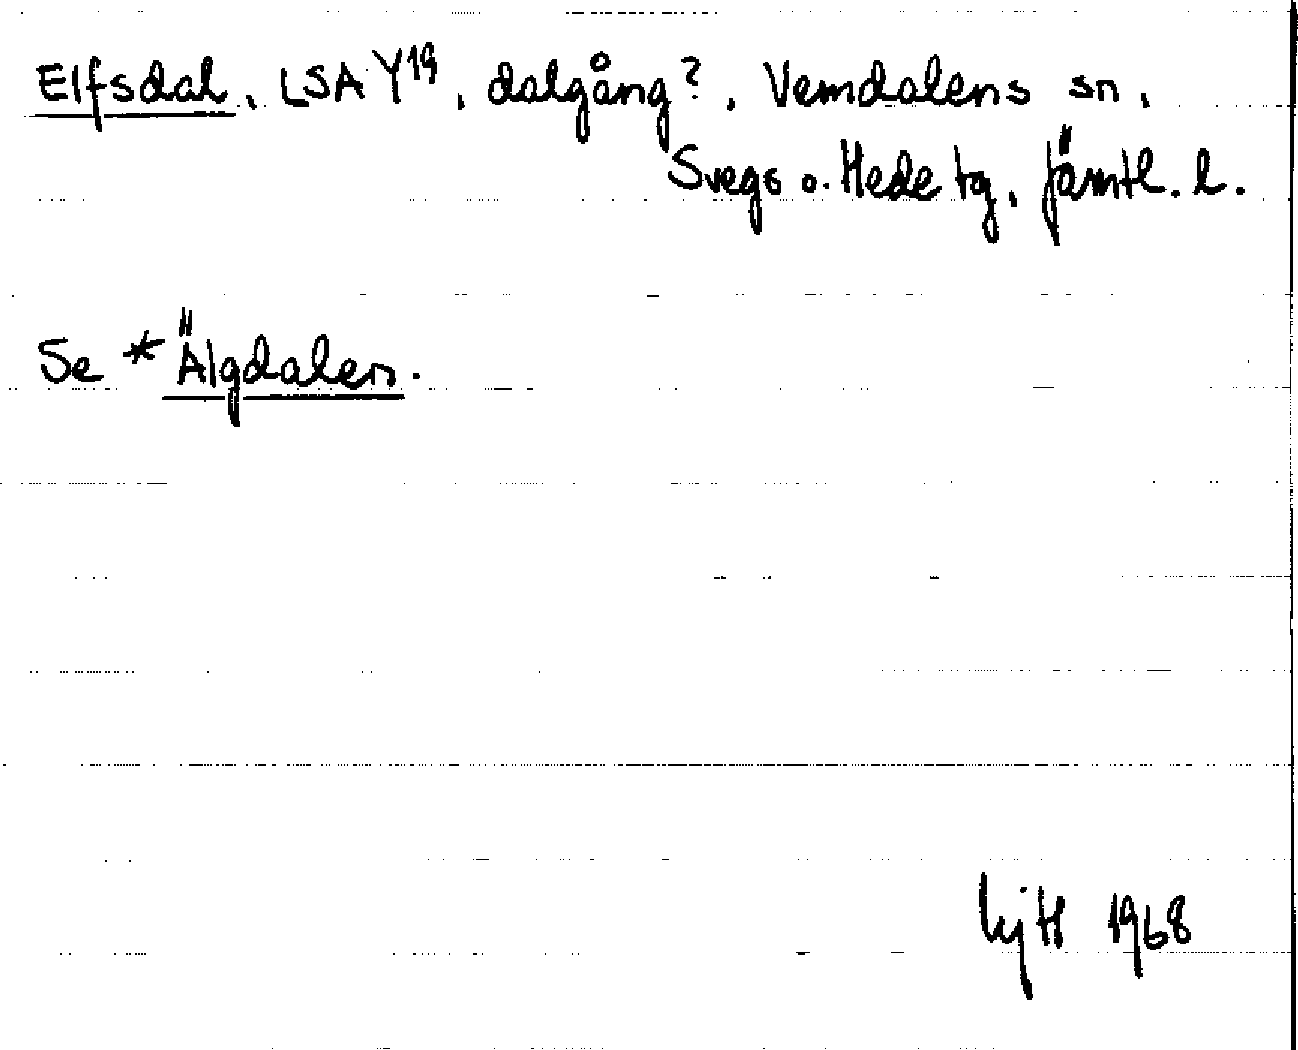 Elfsdal, LSA Y19, dalgång?, Vemdalens sn,
Svegs o. Hede tg, Jämtl. l.
Se *Älgdalen.
LjH 1968